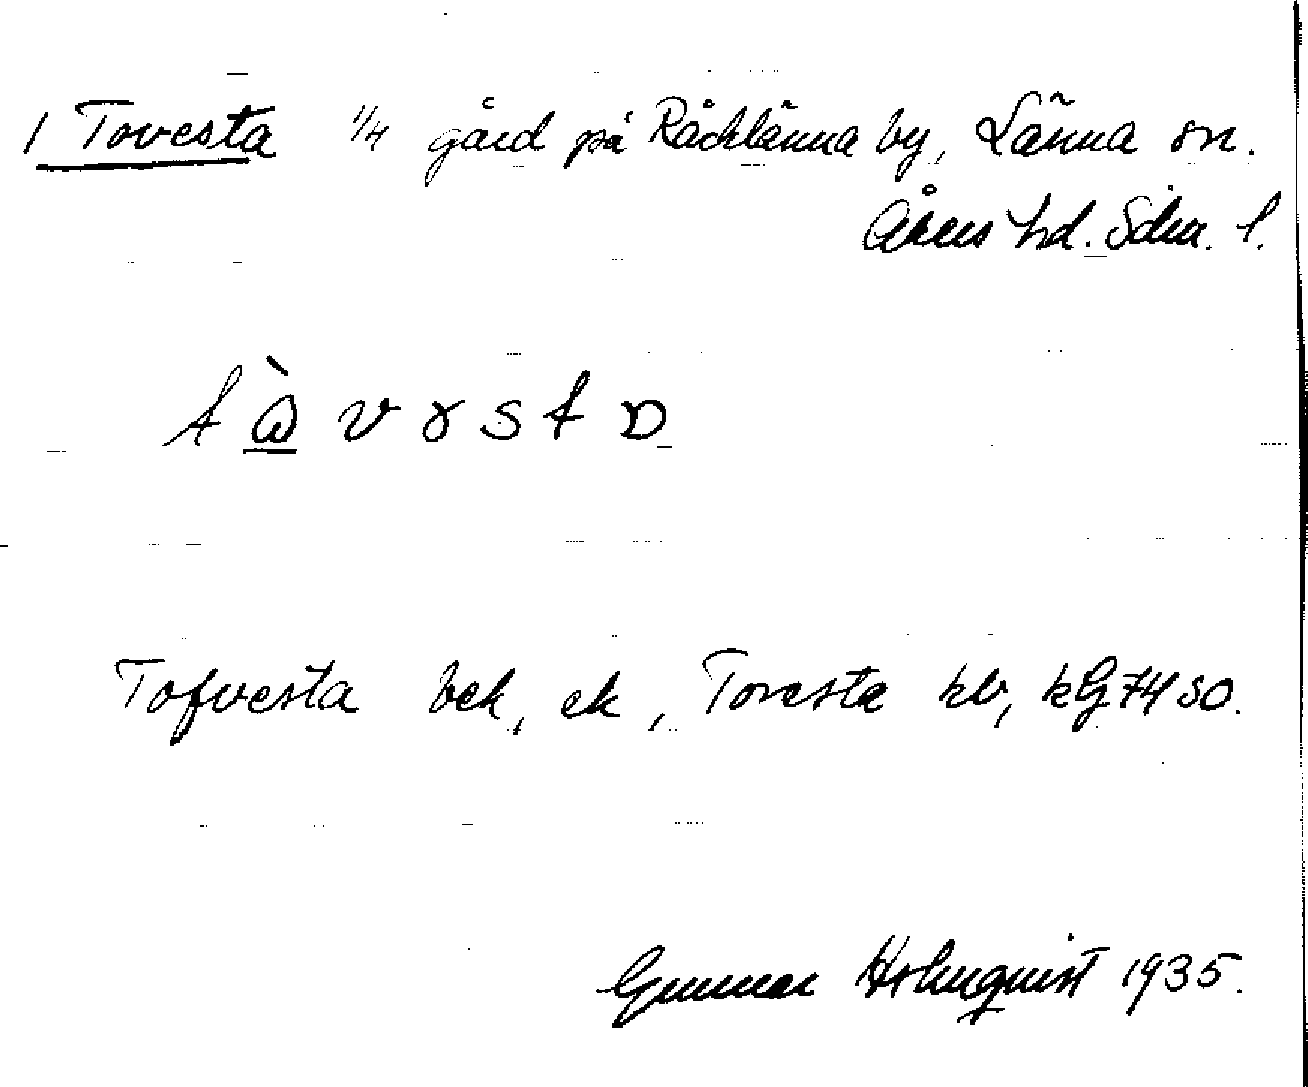 1 Tovesta 1/4 gård på Räcklänna by, Länna sn.
Åkers hd. Sdm. l.
t ὼ v ɤ s t ɒ
Tofvesta bek, ek, Tovesta kb, kG 74 SO.
Gunnar Holmquist 1935.